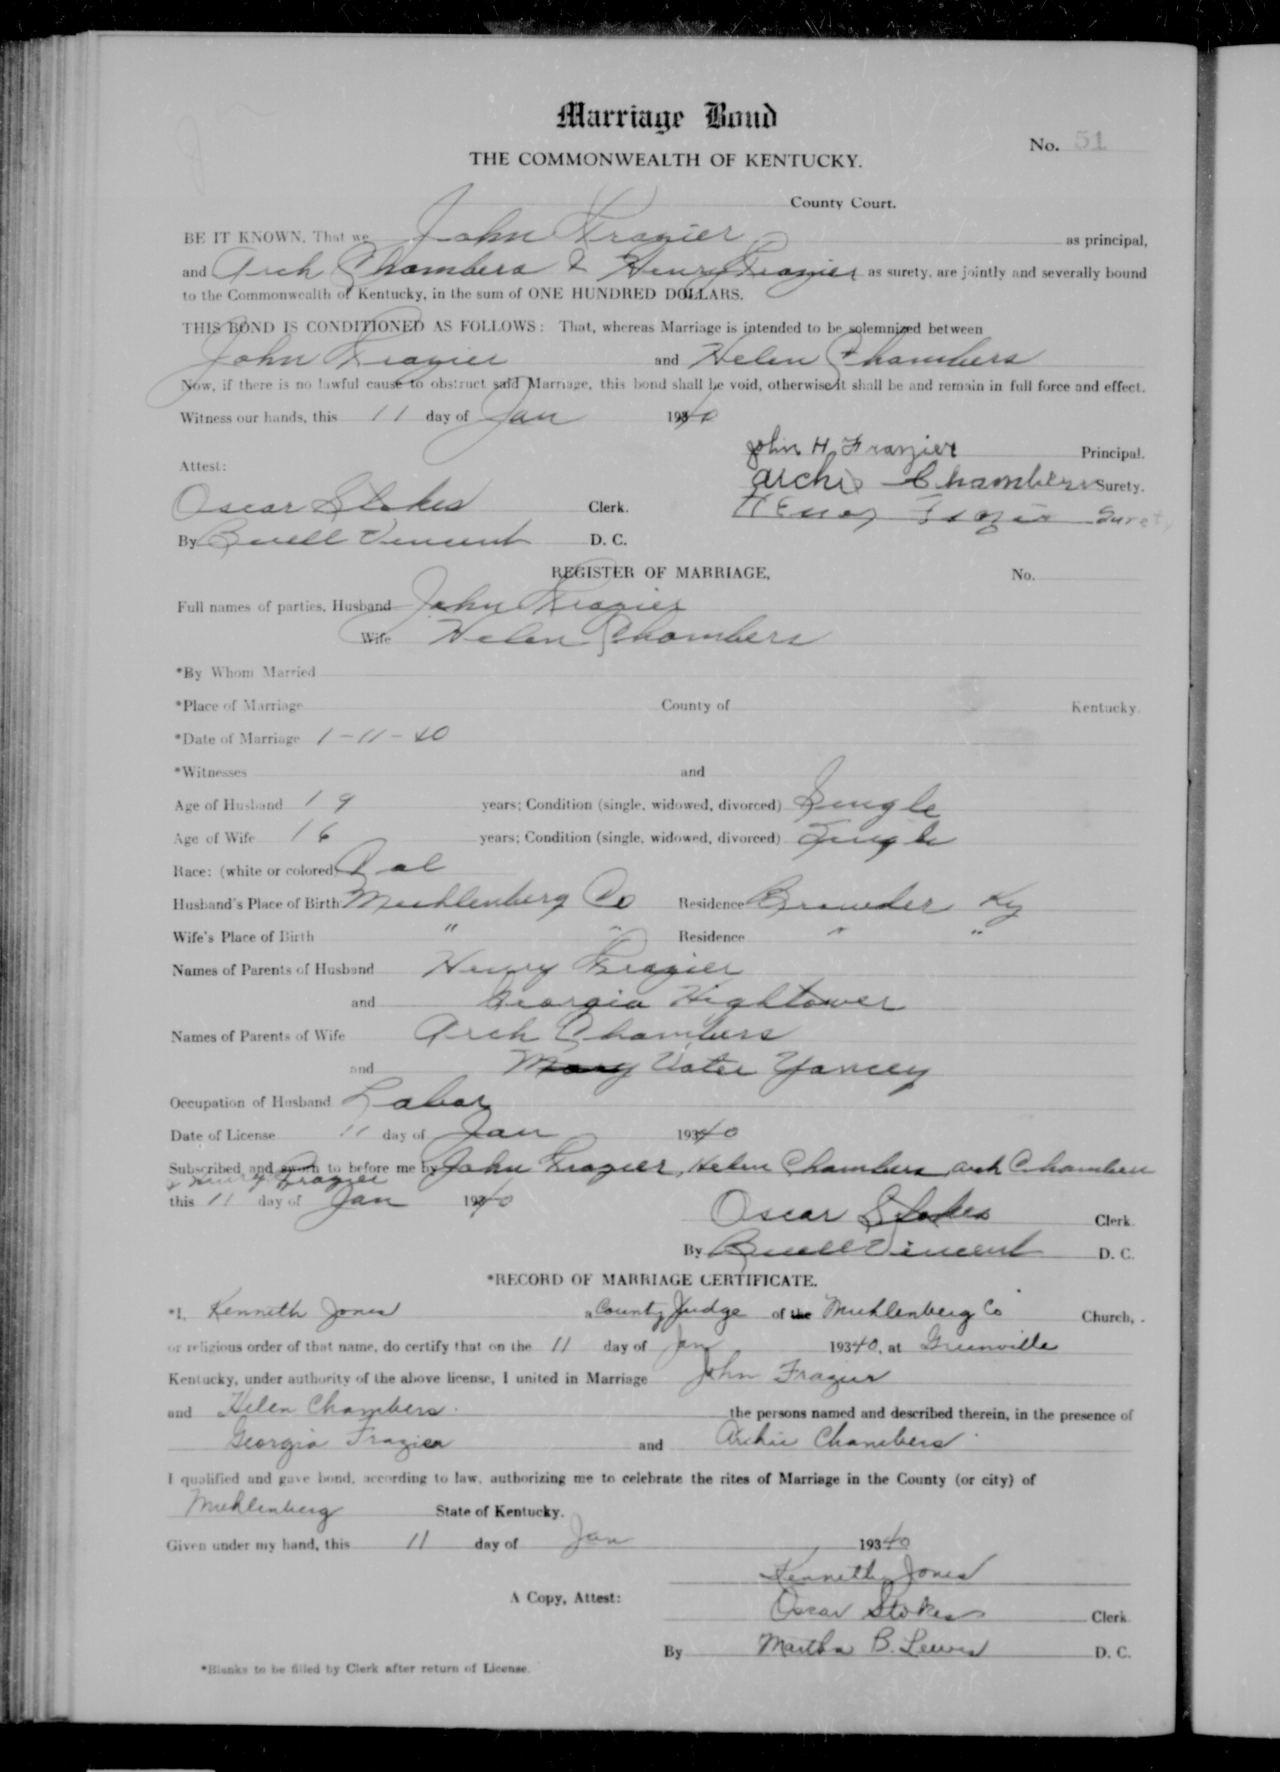 Marriage Bond
No. 51
THE COMMONWEALTH OF KENTUCKY.
County Court.
BE IT KNOWN, That we John Frazier as principal,
and Arch Chambers & Henry Frazier as surety, are jointly and severally bound
to the Commonwealth of Kentucky, in the sum of ONE HUNDRED DOLLARS.
THIS BOND IS CONDITIONED AS FOLLOWS: That, whereas Marriage is intended to be solemnized between
John Frazier and Helen Chambers
Now, if there is no lawful cause to obstruct said Marriage, this bond shall be void, otherwise it shall be and remain in full force and effect.
Witness our hands, this 11 day of Jan 1940
John H. Frazier Principal.
Attest:
Archie Chambers Surety.
Oscar Stokes Clerk.
Henry Frazier Surety
By Buell Vincent D. C.
REGISTER OF MARRIAGE, No.
Full names of parties, Husband John Frazier
Wife Helen Chambers
*By Whom Married
*Place of Marriage County of Kentucky.
*Date of Marriage 1-11-40
*Witnesses and
Age of Husband 19 years; Condition (single, widowed, divorced) Single
Age of Wife 16 years; Condition (single, widowed, divorced) Single
Race: (white or colored) Col
Husband's Place of Birth Muhlenberg Co Residence Browder Ky
Wife's Place of Birth " " Residence " "
Names of Parents of Husband Henry Frazier
and Georgia Hightower
Names of Parents of Wife Arch Chambers
and Mary Yancey
Occupation of Husband Labor
Date of License 11 day of Jan 19340
Subscribed and sworn to before me by John Frazier, Helen Chambers Arch Chambers
& Henry Frazier
this 11 day of Jan 1940
Oscar Stokes Clerk.
By Buell Vincent D. C.
*RECORD OF MARRIAGE CERTIFICATE.
*I, Kenneth Jones a County Judge of the Muhlenberg Co Church,
or religious order of that name, do certify that on the 11 day of Jan 19340, at Greenville
Kentucky, under authority of the above license, I united in Marriage John Frazier
and Helen Chambers. the persons named and described therein, in the presence of
Georgia Frazier and Archie Chambers
I qualified and gave bond, according to law, authorizing me to celebrate the rites of Marriage in the County (or city) of
Muhlenberg State of Kentucky.
Given under my hand, this 11 day of Jan 19340
Kenneth Jones
A Copy, Attest:
Oscar Stokes Clerk
By Martha B. Lewis D. C.
*Blanks to be filled by Clerk after return of License.